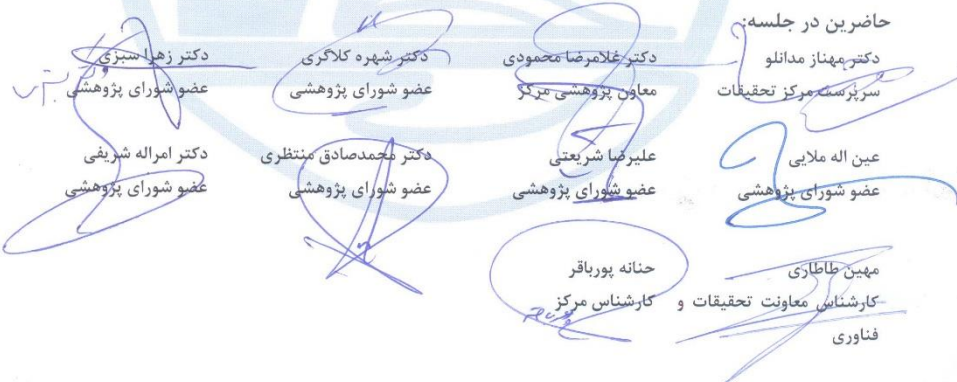 حاضرین در جلسه:
دکتر مهناز مدانلو
سرپرست مرکز تحقیقات
دکتر غلامرضا محمودی
معاون پژوهشی مرکز
دکتر شهره کلاگری
عضو شورای پژوهشی
دکتر زهرا سبزی
عضو شورای پژوهشی
عین اله ملایی
عضو شورای پژوهشی
علیرضا شریعتی
عضو شورای پژوهشی
دکتر محمدصادق منتظری
عضو شورای پژوهشی
دکتر امراله شریفی
عضو شورای پژوهشی
مهین طاطاری
کارشناس معاونت تحقیقات و
فناوری
حنانه پورباقر
کارشناس مرکز